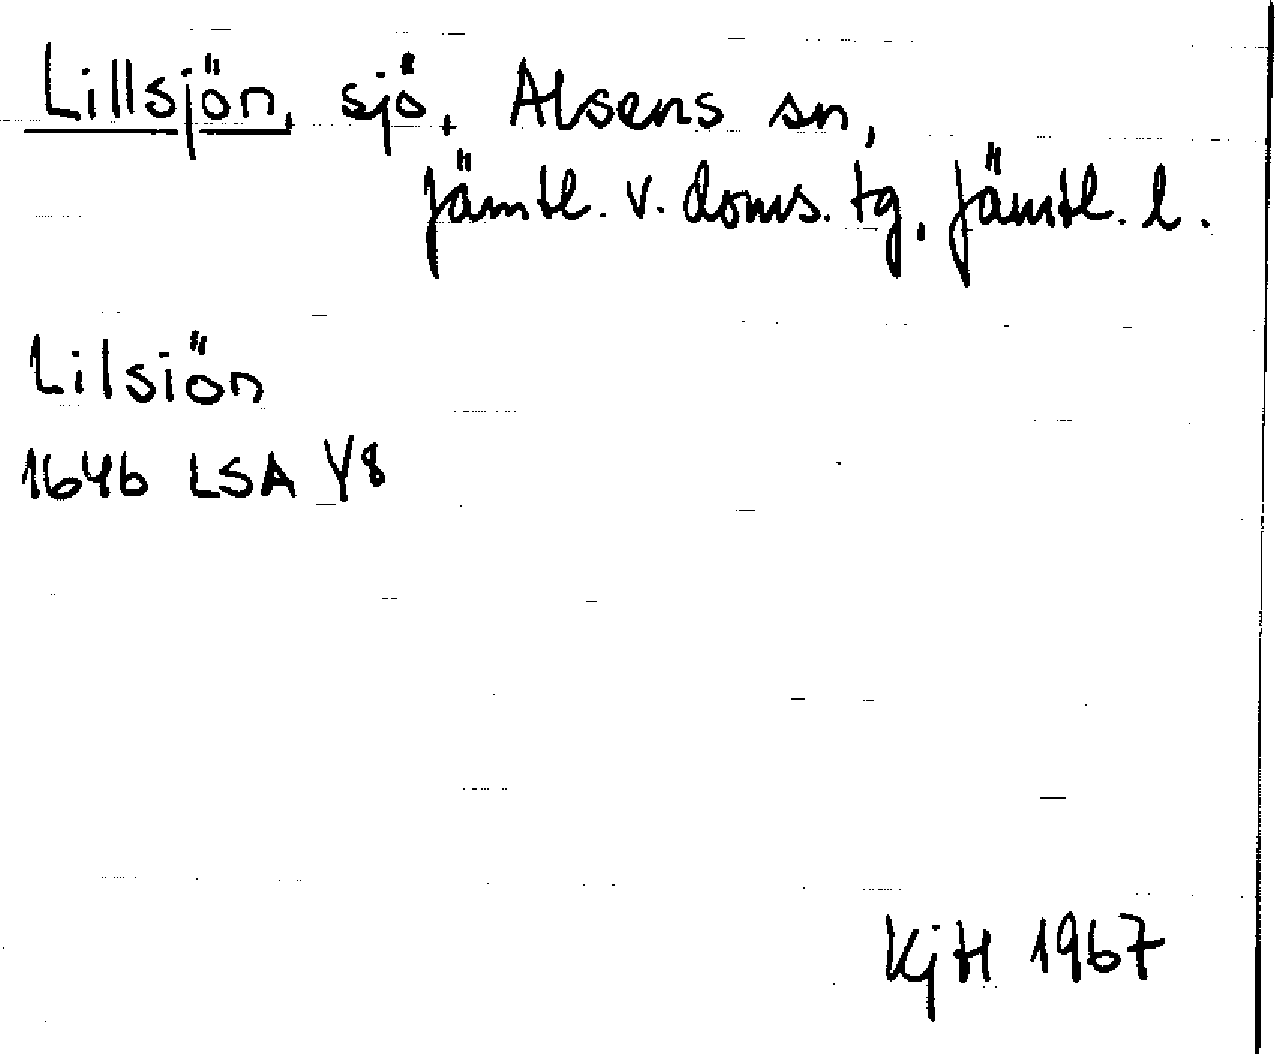 Lillsjön, sjö, Alsens sn,
Jämtl. v. doms. tg, Jämtl. l.
Lilsiön
1646 LSA Y8
KjH 1967